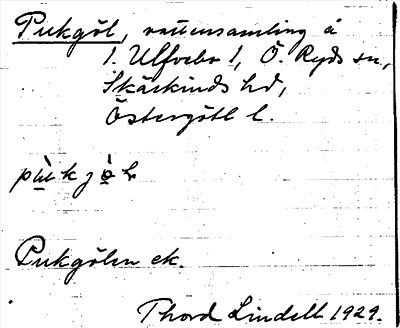 Pukgöl, vattensamling å
1. Ulfvebo 1, Ö. Ryds sn,
Skärkinds hd,
Östergötl l.
Pukgölen ek.
Thord Lindell 1929.